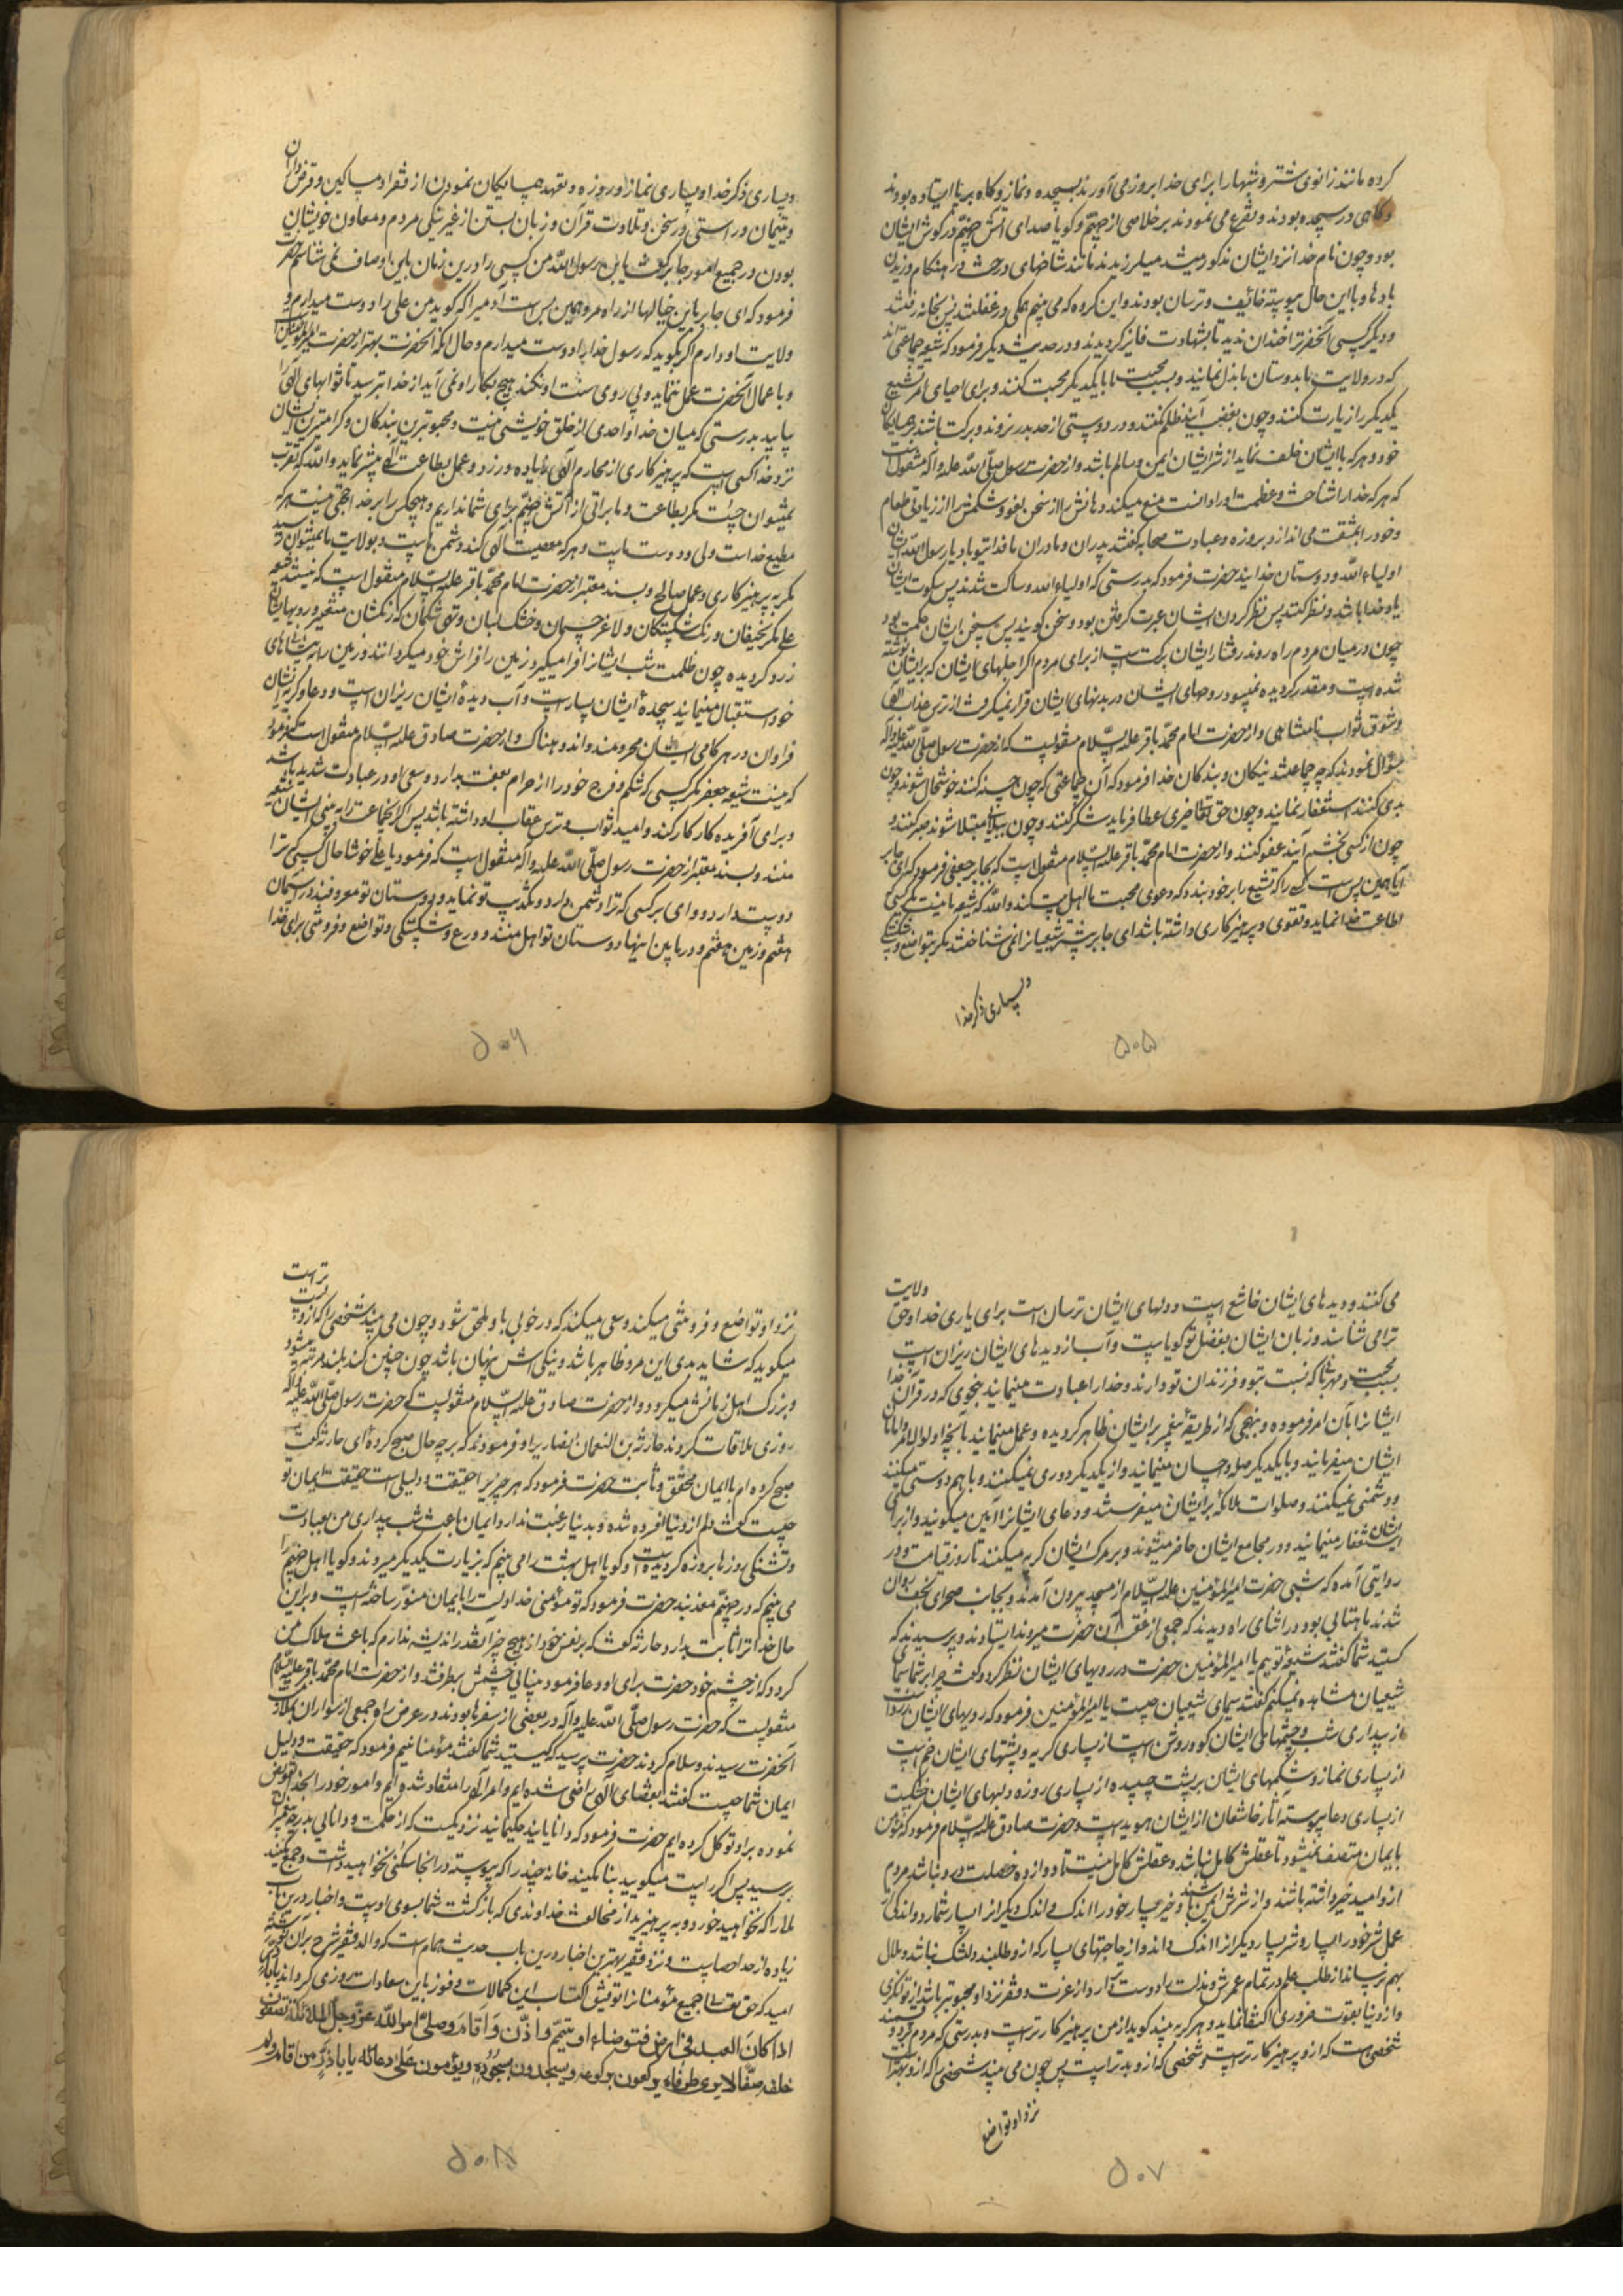 کرده مانند زانوی شتر و شبها را برای خدا بروز می آورند بسجده و نماز و گاه برپا ایستاده بودند
و گاهی در سجده بودند و تضرع می نمودند بر خلاصی از جهنم و گویا صدای آتش جهنم در گوش ایشان
بود و چون نام خدا نزد ایشان مذکور میشد میلرزیدند مانند شاخهای درخت در هنگام وزیدن
بادها و با این حال پیوسته خائف و ترسان بودند و این گروه که می بینم همگی در غفلتند پس بخانه رفتند
و دیگر کسی آنحضرترا خندان ندید تا بشهادت فایز گردیدند و در حدیث دیگر فرمود که شیعه ما جماعتی اند
که در ولایت ما بدوستان ما بذل نمایند و بسبب محبت ما با یکدیگر محبت کنند و برای احیای امر تشیع
یکدیگر را زیارت کنند و چون بغضب آیند ظلم نکنند و در دوستی از حد بدر نروند و برکت باشند بر همسایگان
خود و هر که با ایشان خلف نماید از شر ایشان ایمن و سالم باشد و از حضرت رسول صلّی الله علیه و آله منقول است
که هر که خدا را شناخت و عظمت او را دانست منع میکند دهانش را از سخن لغو و شکمش را از زیادتی طعام
و خود را بمشقت می اندازد بروزه و عبادت صحابه گفتند پدران و مادران ما فدای تو باد یا رسول الله ایشان
اولیاء الله و دوستان خدایند حضرت فرمود که بدرستی که اولیاء الله ساکت شدند پس سکوت ایشان
یاد خدا باشد و نظر کنند پس نظر کردن ایشان عبرت گرفتن بود و سخن گویند پس سخن ایشان حکمت بود
چون در میان مردم راه روند رفتار ایشان برکت است از برای مردم اگر اجلهای ایشان که بر ایشان نوشته
شده است و مقدر گردیده نمیبود روحهای ایشان در بدنهای ایشان قرار نمیگرفت از ترس عذاب الهی
و شوق ثواب نامتناهی و از حضرت امام محمّد باقر علیه السّلام منقولست که از حضرت رسول صلّی الله علیه و آله
سؤال نمودند که چه جماعتند نیکان و بندگان خدا فرمود که آن جماعتی که چون حسنه کنند خوشحال شوند و چون
بدی کنند استغفار نمایند و چون حق تعالی چیزی عطا فرماید شکر کنند و چون ببلایی مبتلا شوند صبر کنند و
چون از کسی بخشم آیند عفو کنند و از حضرت امام محمّد باقر علیه السّلام منقول است که بجابر جعفی فرمود که ای جابر
آیا همین بس است کسی را که تشیع را بر خود ببندد که دعوی محبت ما اهل بیت کند والله که شیعه ما نیست مگر کسی
اطاعت خدا نماید و تقوی و پرهیزکاری داشته باشد ای جابر پیشتر شیعیان را نمی شناختند مگر بتواضع و شکستگی
و بسیاری ذکر خدا
۵۰۵
و بسیاری ذکر خدا و بسیاری نماز و روزه و تعهد همسایگان نمودن از فقرا و مساکین و قرض داران
و یتیمان و راستی در سخن و تلاوت قرآن و زبان بستن از غیر نیکی مردم و معاون خویشان
بودن در جمیع امور جابر گفت یابن رسول الله من کسی را درین زمان باین اوصاف نمی شناسم حضرت
فرمود که ای جابر باین خیالها از راه مرو همین بس است آدمیرا که گوید من علی را دوست میدارم و
ولایت او دارم اگر بگوید که رسول خدا را دوست میدارم و حال آنکه آنحضرت بهتر از حضرت امیر المؤمنین است
و با عمال آنحضرت عمل ننماید و پی روی سنت او نکند هیچ بکار او نمی آید از خدا بترسید تا ثوابهای الهی را
بیابید بدرستی که میان خدا و احدی از خلق خویشی نیست و محبوبترین بندگان و گرامیترین ایشان
نزد خدا کسی است که پرهیزکاری از محارم الهی زیاده ورزد و عمل بطاعت الهی بیشتر نماید والله که تقرب
نمیتوان جست مگر بطاعت و ما براتی از آتش جهنم برای شما نداریم و هیچکس را بر خدا حجتی نیست هر که
مطیع خداست ولی و دوست ماست و هر که معصیت الهی کند دشمن ماست و بولایت ما نمیتوان رسید
مگر به پرهیزکاری و عمل صالح و بسند معتبر از حضرت امام محمّد باقر علیه السّلام منقول است که نیستند شیعه
علی مگر نحیفان و رنگ شکستگان و لاغر جسمان و خشک لبان و تهی شکمان که رنگشان متغیر و رویهایشان
زرد گردیده چون ظلمت شب ایشانرا فرا میگیرد زمین را فراش خود میگردانند و زمین را به پیشانیهای
خود استقبال مینمایند سجدهٔ ایشان بسیار است و آب دیدهٔ ایشان ریزان است و دعا و گریه ایشان
فراوان در هر گاهی ایشان محرومند و اندوهناک و از حضرت صادق علیه السّلام منقول است که فرمود
که نیست شیعه جعفر مگر کسی که شکم و فرج خود را از حرام بعفت بدارد و سعی او در عبادت شدید باشد
و برای آفریده کار کار کند و امید ثواب و ترس عقاب او داشته باشد پس اگر آنجماعت را به بینی ایشان شیعه
منند و بسند معتبر از حضرت رسول صلّی الله علیه و آله منقول است که فرمود یا علی خوشا حال کسی که ترا
دوست دارد و وای بر کسی که ترا دشمن دارد و تکذیب تو نماید و دوستان تو معروفند در آسمان
هفتم و زمین هفتم و در ما بین اینها دوستان تو اهل منند و ورع و شکستگی و تواضع و فروتنی برای خدا
۵۰۶
می کنند و دیده های ایشان خاشع است و دلهای ایشان ترسان است برای یاری خدا و حق ولایت
ترا می شناسند و زبان ایشان بفضل تو گویاست و آب از دیده های ایشان ریزان است
بسبب محبت و مهربانی که نسبت بتو و فرزندان تو دارند و خدا را عبادت مینمایند بنحوی که در قرآن خدا
ایشانرا بآن امر فرموده و بنهجی که از طریقهٔ پیغمبر بر ایشان ظاهر گردیده و عمل مینمایند بآنچه اولو الامر و امامان
ایشان میفرمایند و با یکدیگر صله و احسان مینمایند و از یکدیگر دوری نمیکنند و با هم دوستی میکنند
و دشمنی نمیکنند و صلوات ملائکه بر ایشان میفرستند و دعای ایشانرا آمین میگویند و از برای
ایشان استغفار مینمایند و در مجامع ایشان حاضر میشوند و بر مرگ ایشان گریه میکنند تا روز قیامت و در
روایتی آمده که شبی حضرت امیر المؤمنین علیه السّلام از مسجد بیرون آمدند و بجانب صحرای نجف روان
شدند ماهتابی بود در اثنای راه دیدند که جمعی از عقب آن حضرت میروند ایستادند و پرسیدند که
کستید شما گفتند شیعه توییم یا امیر المؤمنین حضرت در رویهای ایشان نظر کرد و گفت چرا بر شما سیمای
شیعیان مشاهده نمیکنم گفتند سیمای شیعیان چیست یا امیر المؤمنین فرمود که رویهای ایشان زرد است
از بیداری شب و چشمهای ایشان کور و روشن است از بسیاری گریه و پشتهای ایشان خم است
از بسیاری نماز و شکمهای ایشان بر پشت چسبیده از بسیاری روزه و لبهای ایشان خشک است
از بسیاری دعا پیوسته آثار خاشعان از ایشان هویداست و حضرت صادق علیه السّلام فرمود که مؤمن
بایمان متصف نمیشود تا عقلش کامل نباشد و عقلش کامل نیست تا دوازده خصلت درو نباشد مردم
ازو امید خیر داشته باشند و از شرش ایمن باشند و خیر بسیار خود را اندک داند و اندک دیگرانرا بسیار شمارد و اندکی از
عمل شر خود را بسیار و شر بسیار دیگرانرا اندک داند و از حاجتهای بسیار که ازو طلبند دلتنگ نباشد و ملال
بهم نرساند از طلب علم در تمام عمرش و مذلت را دوست تر دارد از عزت و فقر نزد او محبوبتر باشد از توانگری
و از دنیا بقوت ضروری اکتفا نماید و هر که به بیند گوید از من پرهیزکارتر است و بدرستی که مردم دو قسمند
شخصی است که ازو پرهیزکارتر است و شخصی که ازو بدتر است پس چون می بیند شخصی را که ازو بهتر است
نزد او تواضع
۵۰۷
نزد او تواضع و فروتنی میکند و سعی میکند که در خوبی باو ملحق شود و چون می بیند شخصی را که ازو پست تر است
میگوید که شاید بدی این مرد ظاهر باشد و نیکی اش پنهان باشد چون چنین کند بلند مرتبه میشود
و بزرگ اهل زمانش میگردد و از حضرت صادق علیه السّلام منقولست که حضرت رسول صلّی الله علیه و آله
روزی ملاقات کردند حارثة بن النعمان انصاری را و فرمودند که بر چه حال صبح کردهٔ ای حارثه گفت
صبح کرده ام با ایمان محقق و ثابت حضرت فرمود که هر چیزیرا حقیقت و دلیلی است حقیقت ایمان تو
چیست گفت دلم از دنیا افسرده شده و بدنیا رغبت ندارد و ایمان باعث شب بیداری من بعبادت
و تشنگی روزها بروزه گردیده است و گویا اهل بهشت را می بینم که بزیارت یکدیگر میروند و گویا اهل جهنم را
می بینم که در جهنّم معذبند حضرت فرمود که تو مؤمنی خدا دلت را بایمان منوّر ساخته است و بر این
حال خدا ترا ثابت بدارد حارثه گفت که بر نفس خود از هیچ چیز آنقدر اندیشه ندارم که باعث هلاک من
گردد که از چشم خود حضرت برای او دعا فرمود بینایی چشمش برطرف شد و از حضرت امام محمّد باقر علیه السّلام
منقولست که حضرت رسول صلّی الله علیه و آله در بعضی از سفرها بودند در عرض راه جمعی از سواران بملازمت
آنحضرت رسیدند و سلام کردند حضرت پرسید که کیستید شما گفتند مؤمنانیم فرمود که حقیقت و دلیل
ایمان شما چیست گفتند بقضای الهی راضی شده ایم و امر او را منقاد شده ایم و امور خود را بخدا تفویض
نموده بر او توکل کرده ایم حضرت فرمود که دانایانند حکیمانند نزدیکست که از حکمت و دانایی بدرجهٔ پیغمبران
برسید پس اگر راست میگویید بنا مکنید خانه چند را که پیوسته در انجا سکنی نخواهید داشت و جمع مکنید
مالی را که نخواهید خورد و به پرهیزید از مخالفت خداوندی که بازگشت شما بسوی اوست و اخبار درین باب
زیاده از حد احصاست و نزد فقیر بهترین اخبار درین باب حدیث همام است که والد فقیر شرح بر آن نوشته
امید که حق تعالی جمیع مؤمنانرا توفیق اکتساب این کمالات و فوز باین سعادات روزی گرداند یا باذر
اذا کان العبد فی ارض قفر فتوضاء او تیمّم و اذّن و اقام و صلّی امر الله عزّ و جلّ الملائکة فصفّوا
خلفه صفّا لا یری طرفاه یرکعون برکوعه و یسجدون بسجوده و یؤمنون علی دعائه یا باذرّ من اقام و لم
۵۰۸